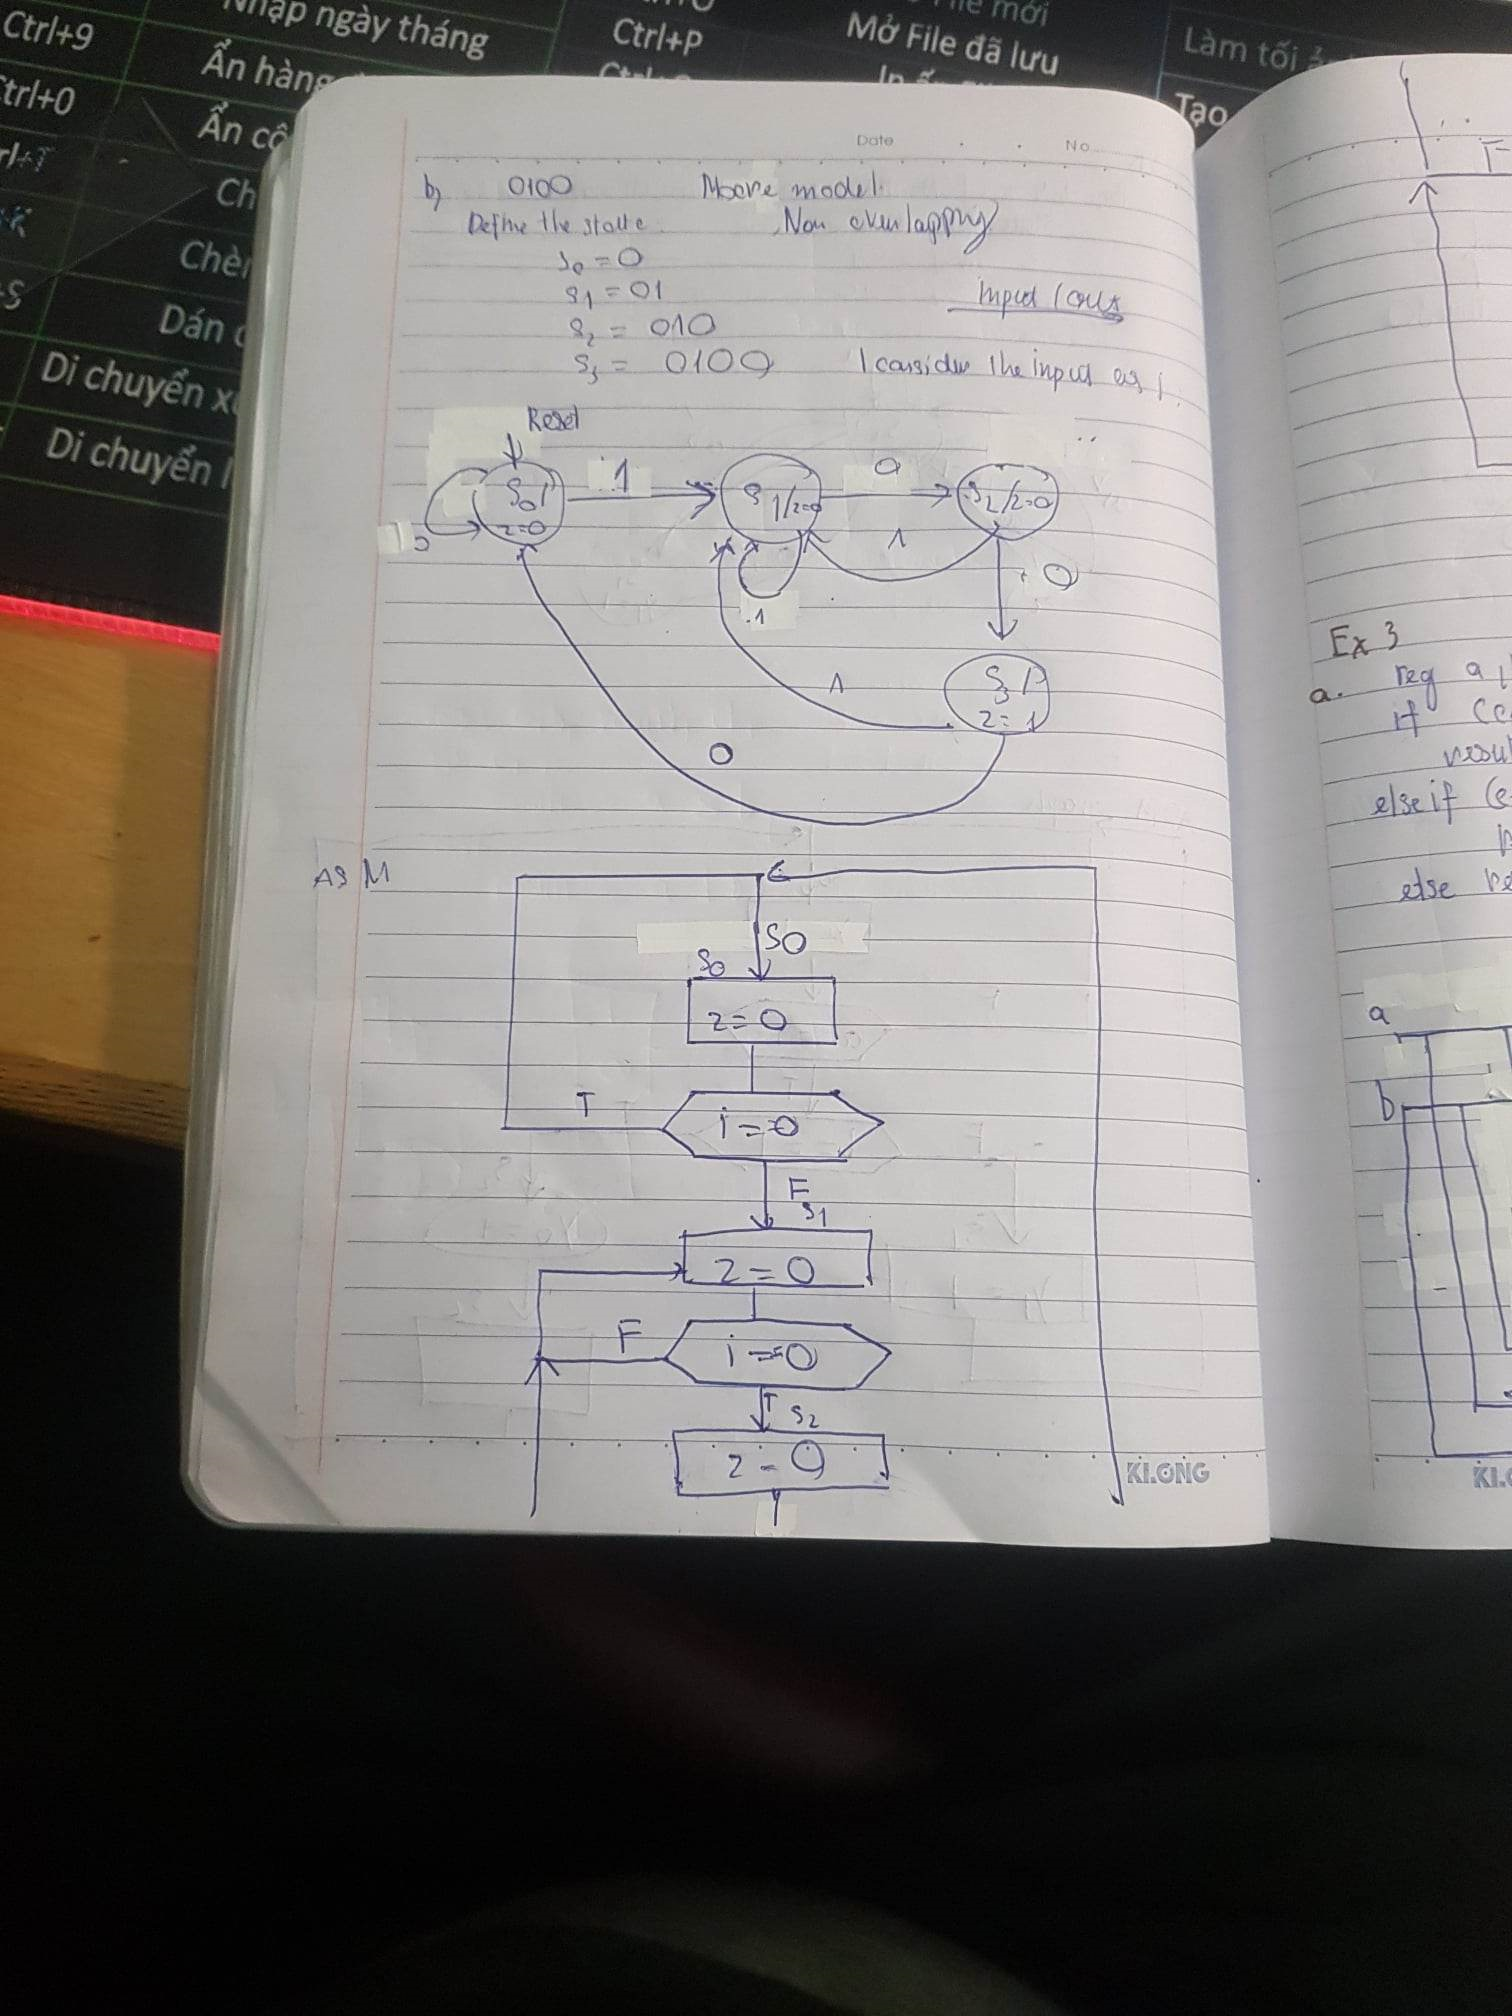 Ctrl+9
Nhập ngày tháng
Ctrl+P
Mở File đã lưu
Làm tối
Ctrl+0
Ẩn hàng
Ẩn
Tạo
Ch
Dán
Di chuyển
Di chuyển
Date
No
b, 0100 Moore model
Define the state Non overlapping
S0 = 0
S1 = 01
S2 = 010
S3 = 0100 I consider the input as i
Reset
S0/ z=0
1
S1/z=0
0
S2/z=0
0
1
1
0
S3/ z=1
1
0
ASM
S0
S0
z=0
T
i==0
F
S1
z=0
F
i==0
T
S2
z=0
KLONG
F
Ex 3
a. reg a
if
else if
else
a
b